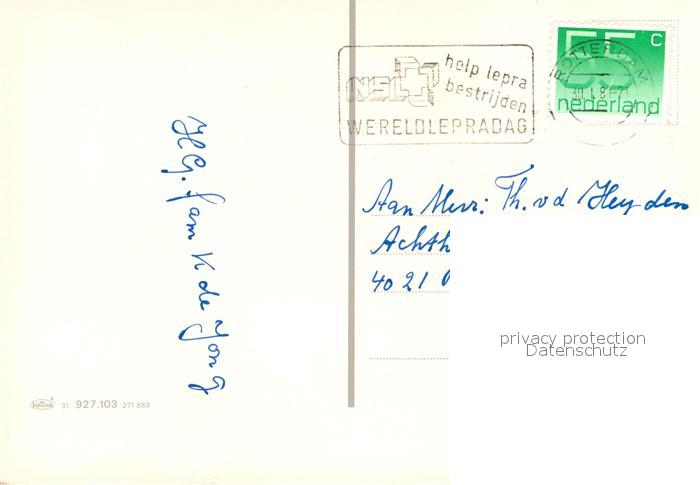 help lepra
bestrijden
NSL
WERELDLEPRADAG
55 c
nederland
ROTTERDAM
H.G. fam K de Jong
Aan Mevr: Th. v d Heyden
Achth
40 21
privacy protection
Datenschutz
31. 927.103 271 883